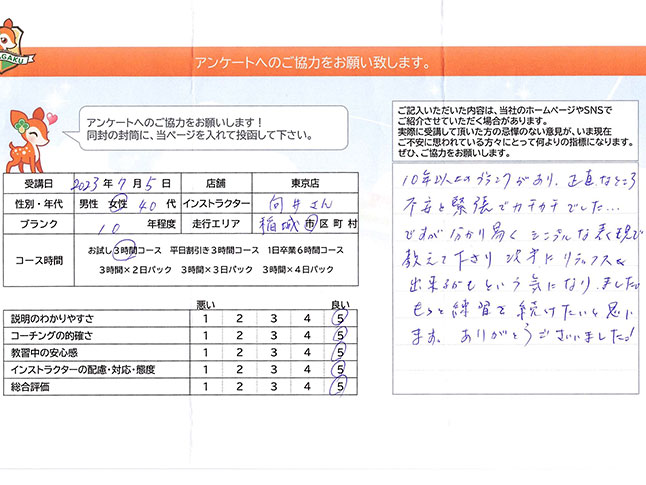 GAKU
アンケートへのご協力をお願い致します。
アンケートへのご協力をお願いします！
同封の封筒に、当ページを入れて投函して下さい。
ご記入いただいた内容は、当社のホームページやSNSで
ご紹介させていただく場合があります。
実際に受講して頂いた方の忌憚のない意見が、いま現在
ご不安に思われている方々にとって何よりの指標になります。
ぜひ、ご協力をお願いします。
受講日 2023年 7月 5日 店舗 東京店
性別・年代 男性 女性 40代 インストラクター 向井さん
ブランク 10 年程度 走行エリア 稲城 市区町村
コース時間 お試し3時間コース 平日割引き3時間コース 1日卒業6時間コース
3時間×2日パック 3時間×3日パック 3時間×4日パック
悪い 良い
説明のわかりやすさ 1 2 3 4 5
コーチングの的確さ 1 2 3 4 5
教習中の安心感 1 2 3 4 5
インストラクターの配慮・対応・態度 1 2 3 4 5
総合評価 1 2 3 4 5
10年以上のブランクがあり、正直なところ
不安と緊張でカチカチでした…
ですが分かり易くシンプルな表現で
教えて下さり 次第にリラックス
出来るかもという気になりました。
もっと練習を続けたいと思い
ます。ありがとうございました!